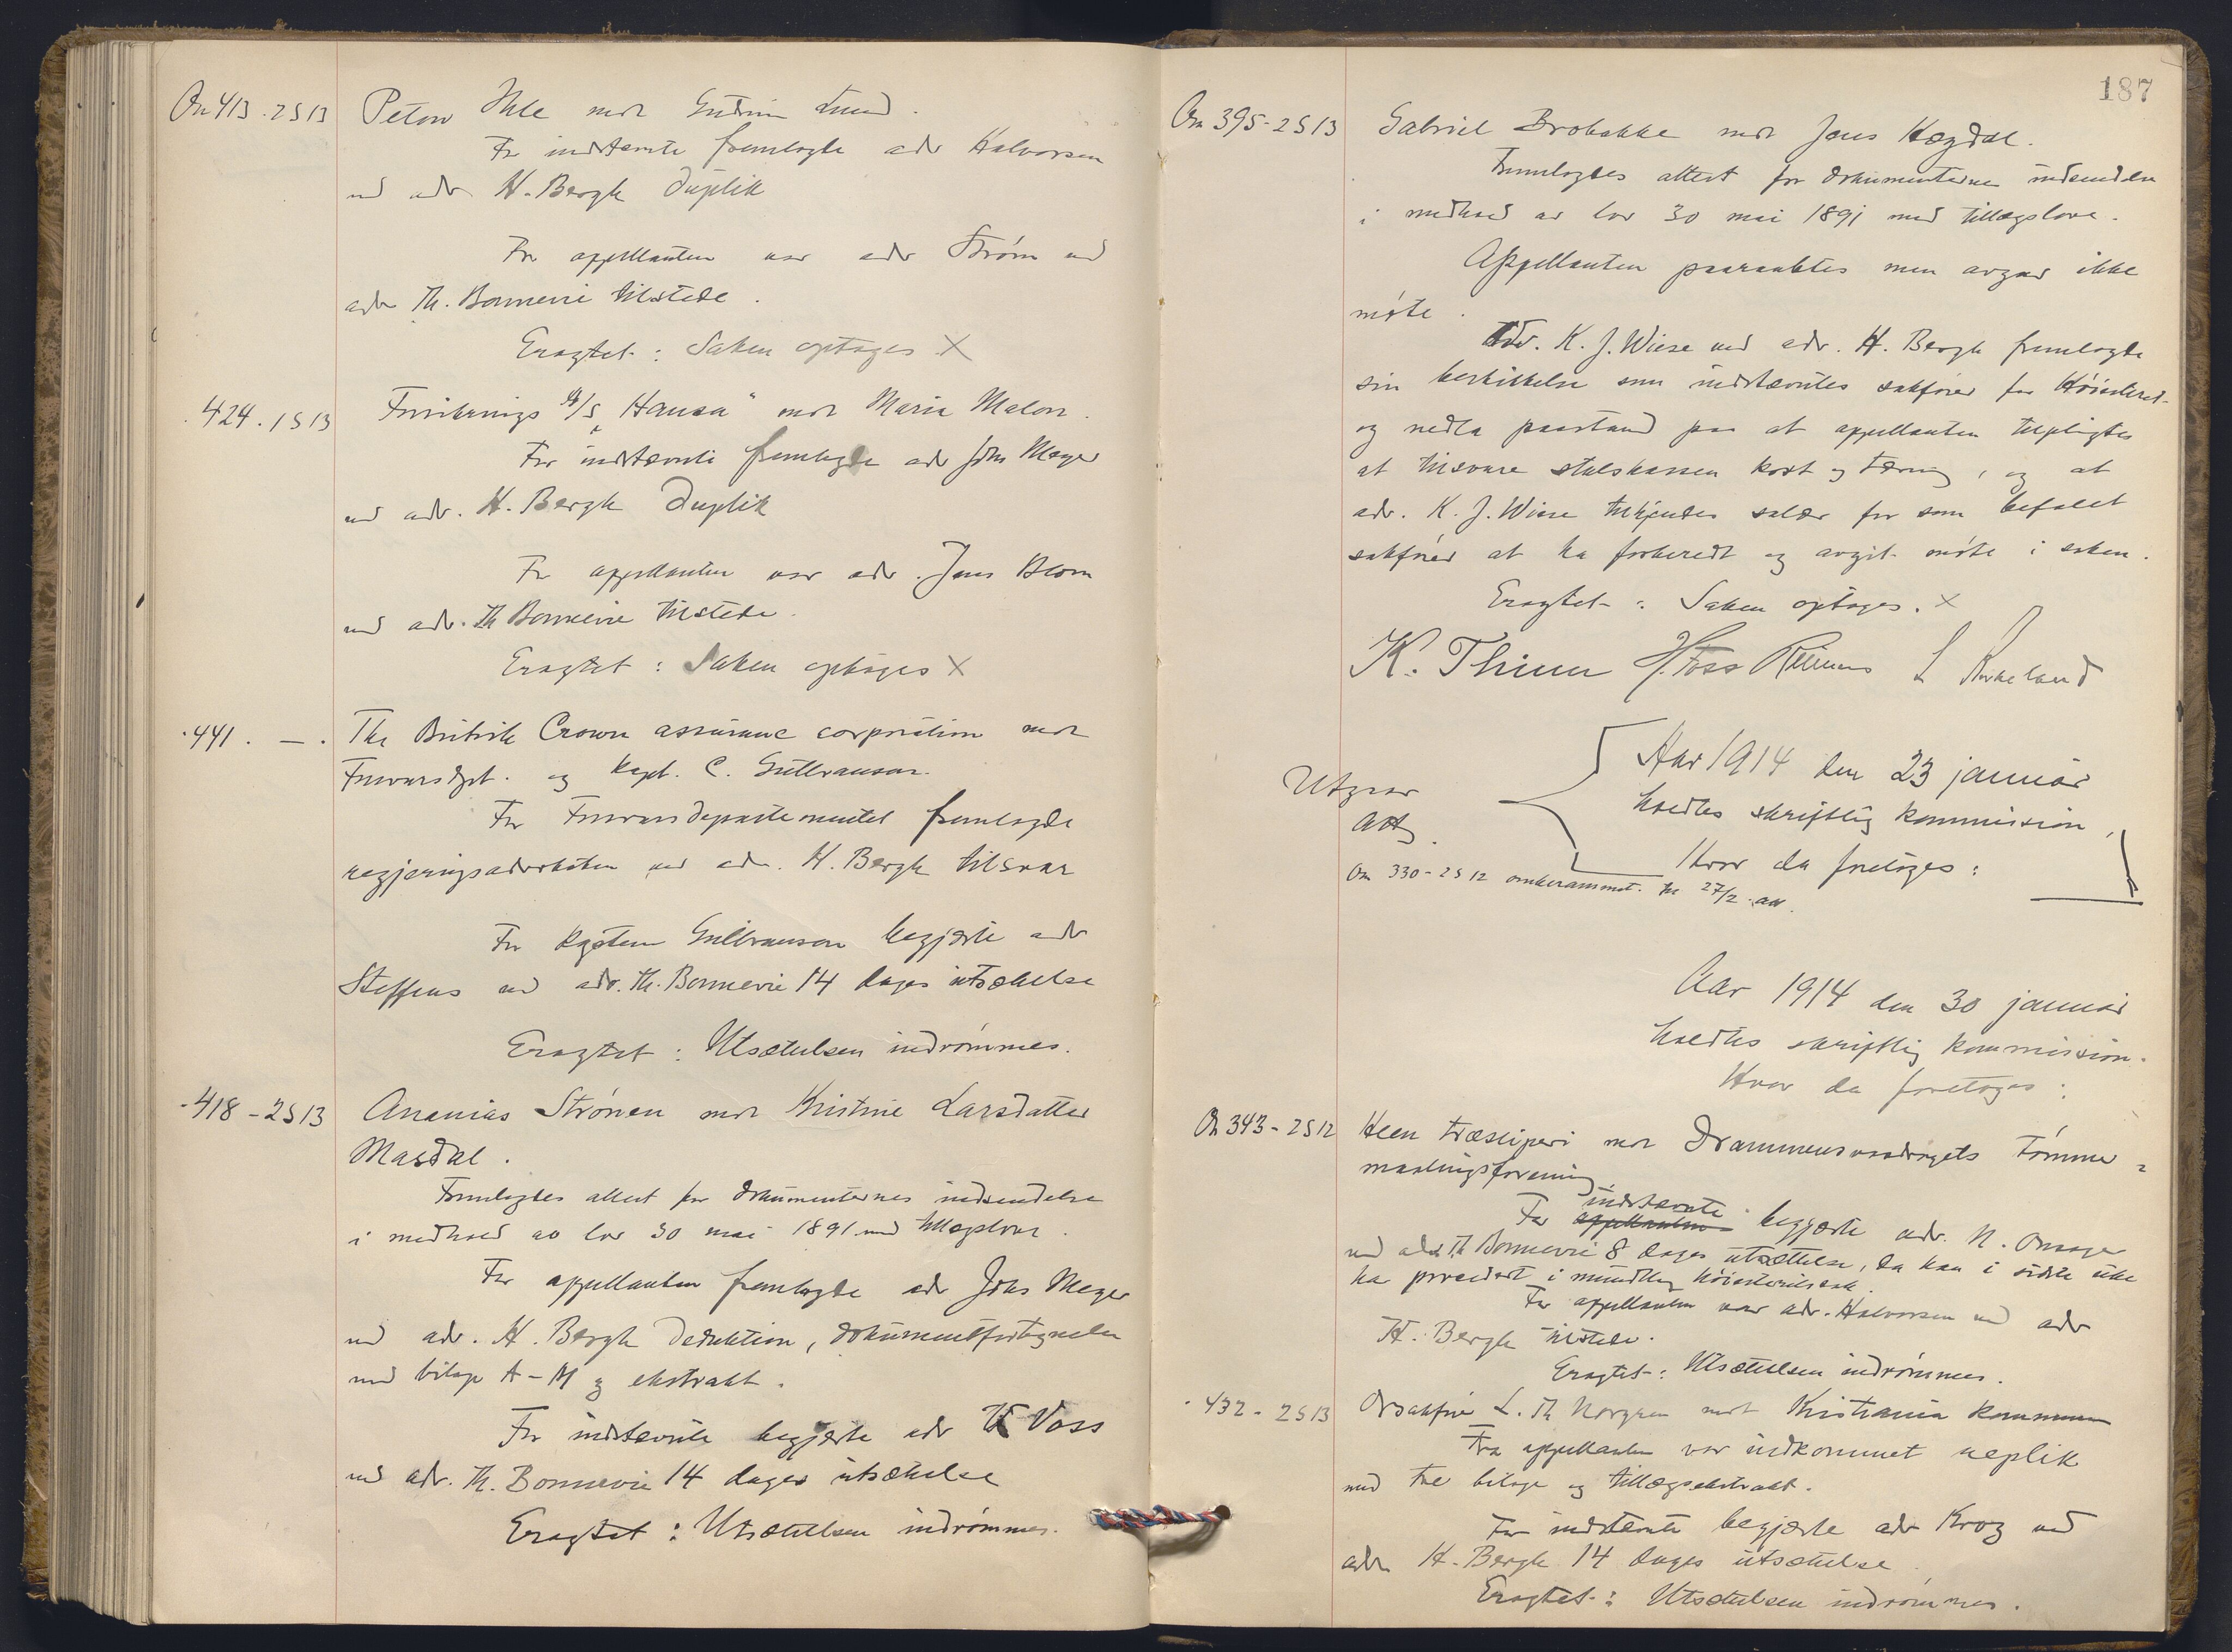 On 413 . 2 S 13 Petow Ihle mot Gudrun Lund.
For indstevnte fremlagde adv Halvorsen
ved adv H. Bergh Duplik
For appellanten var adv Strøm ved
adv Th. Bonnevie tilstede.
Eragtet : Saken optages X
424 . 1 S 13 Forsikrings A/S „Hansa" mot Maria Malon.
For indstævnte fremlagde adv Johs Meyer
ved adv. H. Bergh Duplik
For appellanten var adv. Jens Blom
ved adv. Th Bonnevie tilstede.
Eragtet : Saken optages X
441 . — . The British Crown assurance corporation mot
Forsvarsdpt. og kapt. C. Gulbranson.
For Forsvarsdepartementet fremlagde
regjeringsadvokaten ved adv. H. Bergh tilsvar
For kaptein Gulbranson begjærte adv
Steffens ved adv. Th. Bonnevie 14 dages utsættelse
Eragtet : Utsættelsen indrømmes.
418 - 2 S 13 Ananias Strønen mot Kristine Larsdatter
Masdal.
Fremlagdes attest for dokumenternes indsendelse
i medhold av lov 30 mai 1891 med tillægslove.
For appellanten fremlagde adv Johs Meyer
ved adv. H. Bergh Deduktion, dokumentfortegnelse
med bilage A - M og ekstrakt.
For indstævnte begjærte adv Voss
ved adv. Th. Bonnevie 14 dages utsættelse
Eragtet : Utsættelsen indrømmes.
187
On 395 - 2 S 13 Gabriel Brobakke mot Jens Hegdal.
Fremlagdes attest for dokumenternes indsendelse
i medhold av lov 30 mai 1891 med tillægslove.
Appellanten paaraabtes men avgav ikke
møte.
Adv. K. J. Wiese ved adv. H. Bergh fremlagde
sin beskikkelse som indstævntes sakfører for Høiesteret
og nedla paastand paa at appellanten tilpligtes
at tilsvare statskassen kost og tæring, og at
adv. K. J. Wiese tilkjendes salær for som befalet
sakfører at ha forberedt og avgit møte i saken.
Eragtet : Saken optages. X
K. Thinn H. Foss Reimers L Birkeland
Utgaar
Aar 1914 den 23 januar
holdtes skriftlig kommission,
Hvor da foretoges :
On 330 - 2 S 12 omberammet til 27/2.
Aar 1914 den 30 januar
holdtes skriftlig kommission.
Hvor da foretoges :
On 343 - 2 S 12 Heen træsliperi mot Drammensvasdragets Tømmer-
maalingsforening
indstevnte
For appellanten begjærte adv. N. Onsager
ved adv Th Bonnevie 8 dages utsættelse, da han i sidste uke
har procedert i mundtlig høiesteretssak.
For appellanten var adv. Halvorsen ved adv
H. Bergh tilstede.
Eragtet : Utsættelsen indrømmes.
432 - 2 S 13 Orsakfører L. Th Norgren mot Kristiania kommune
Fra appellanten var indkommet replik
med tre bilage og tillægsekstrakt.
For indstevnte begjærte adv Krog ved
adv H. Bergh 14 dages utsættelse.
Eragtet : Utsættelsen indrømmes.